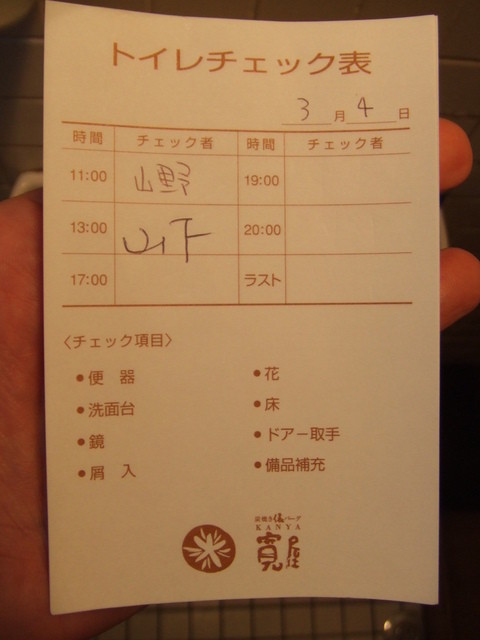 トイレチェック表
3月4日
時間 チェック者 時間 チェック者
11:00 山野 19:00
13:00 山下 20:00
17:00 ラスト
〈チェック項目〉
●便 器
●洗面台
●鏡
●屑 入
●花
●床
●ドアー取手
●備品補充
KANYA
寛屋